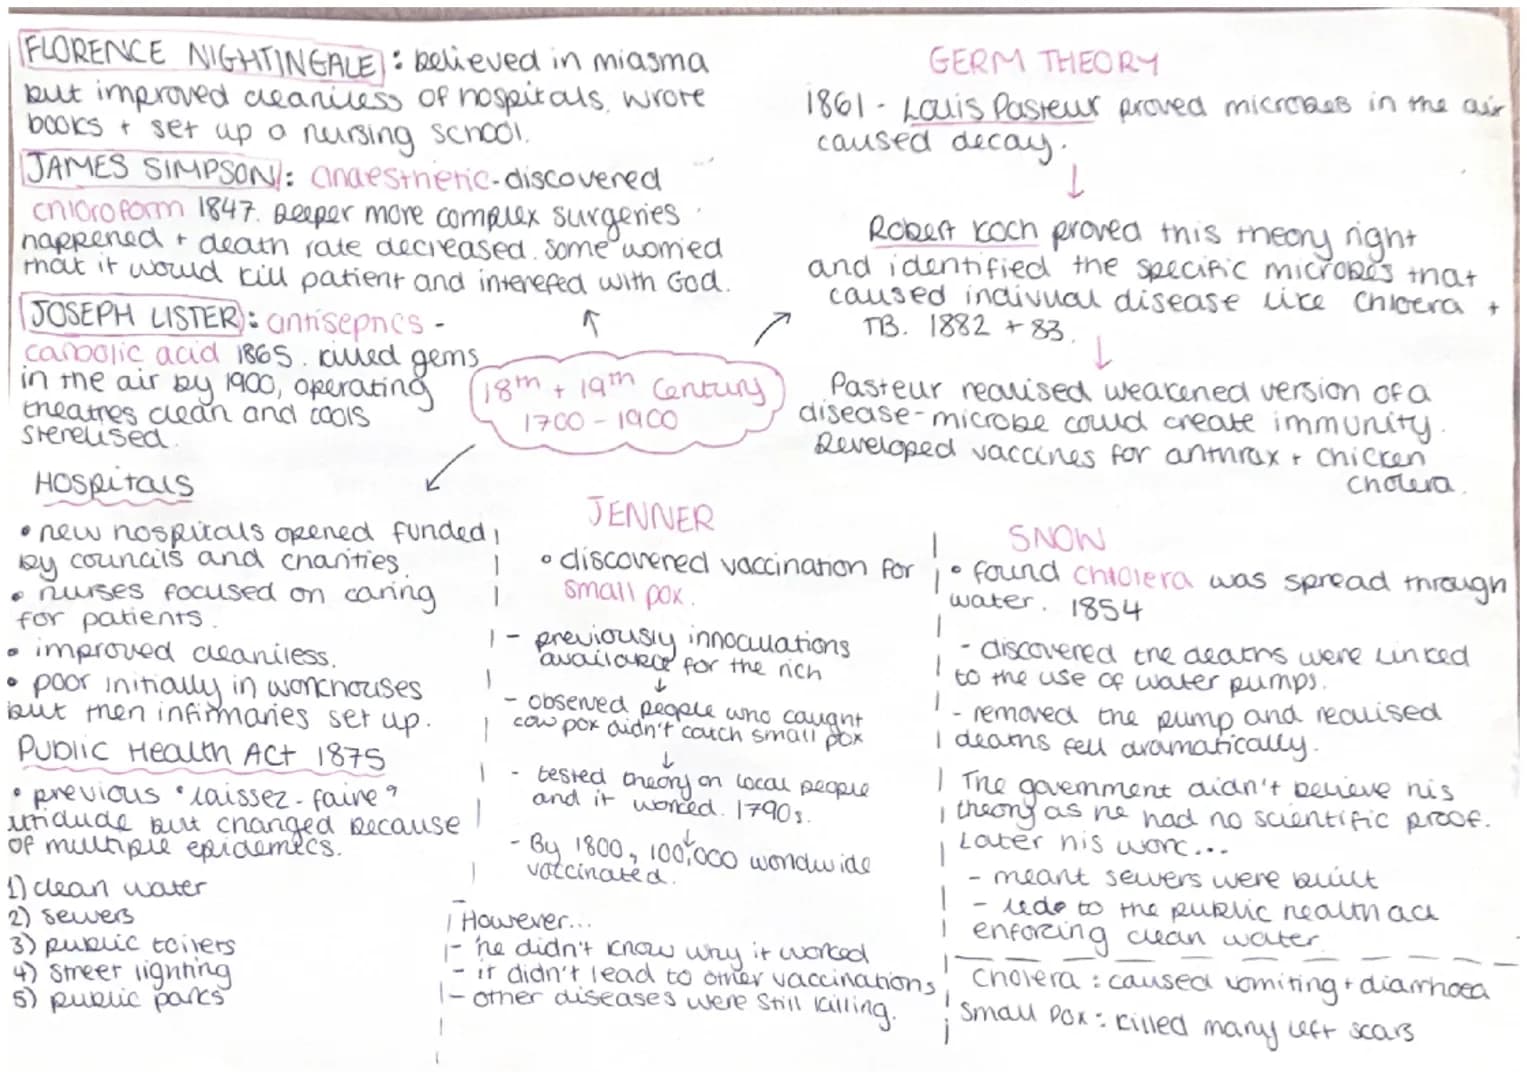 FLORENCE NIGHTINGALE: believed in miasma
but improved cleaniless of hospitals. wrote
books + set up a nursing school.
JAMES SIMPSON: anaesthetic-discovered
chloroform 1847. Deeper more complex surgeries
happened + death rate decreased. some worried
that it would kill patient and interefed with God.
JOSEPH LISTER: antiseptics -
carbolic acid 1865. killed gems
in the air by 1900, operating
theatres clean and tools
sterelised.
18th + 19th Century
1700 - 1900
GERM THEORY
1861 - Louis Pasteur proved microbes in the air
caused decay.
↓
Robert Koch proved this theory right
and identified the specific microbes that
caused indivual disease like Chloera +
TB. 1882 + 83.
↓
Pasteur realised weakened version of a
disease-microbe could create immunity.
Developed vaccines for anthrax + chicken
cholera.
Hospitals
• new hospitals opened funded
by councils and charities.
• nurses focused on caring
for patients.
• improved cleaniless.
• poor initially in workhouses
but then infirmaries set up.
Public Health Act 1875
• previous "laissez-faire"
atidude but changed because
of multiple epidemics.
1) clean water
2) sewers
3) public toilets
4) street lighting
5) public parks
JENNER
• discovered vaccination for
small pox.
- previously innoculations
available for the rich
↓
- observed people who caught
cow pox didn't catch small pox
↓
- tested theory on local people
and it worked. 1790s.
↓
- By 1800, 100,000 worldwide
vaccinated.
However...
- he didn't know why it worked
- it didn't lead to other vaccinations
- other diseases were still killing.
SNOW
• found chlolera was spread through
water. 1854
- discovered the deaths were linked
to the use of water pumps.
- removed the pump and realised
deaths fell dramatically.
The government didn't believe his
theory as he had no scientific proof.
Later his work...
- meant sewers were built
- lede to the public health act
enforcing clean water.
Cholera : caused vomiting + diarrhoea
Small Pox : killed many left scars